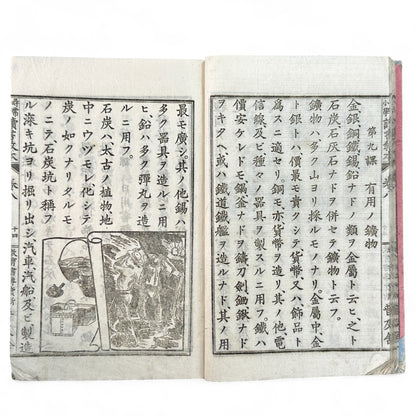 第九課　有用ノ鑛物
金銀銅鐵錫鉛ナドノ類ヲ金屬ト云ヒ、之ト
石炭石灰石ナドヲ併セテ鑛物ト云フ。
鑛物ハ多ク山ヨリ採ルモノナリ。金屬中、金
ト銀トハ、價最モ貴クシテ、貨幣又ハ飾品ト
爲スニ適セリ。銅モ亦貨幣ヲ造リ、其ノ他、電
信線及ビ種々ノ器具ヲ製スルニ用フ。鐵ハ
價安ケレドモ、鍋釜ナドヲ鑄、刀劍鋤鍬ナド
ヲキタヘ、或ハ鐵道鐵艦ヲ造ルナド、其ノ用
最モ廣シ。其ノ他錫ハ
多ク器具ヲ造ルニ用
ヒ、鉛ハ多ク彈丸ヲ造
ルニ用フ。
石炭ハ太古ノ植物地
中ニウヅモレ化シテ
炭ノ如クナリタルモ
ノニテ石炭坑ト稱フ
ル深キ坑ヨリ掘リ出シ汽車汽船及ビ製造
十四